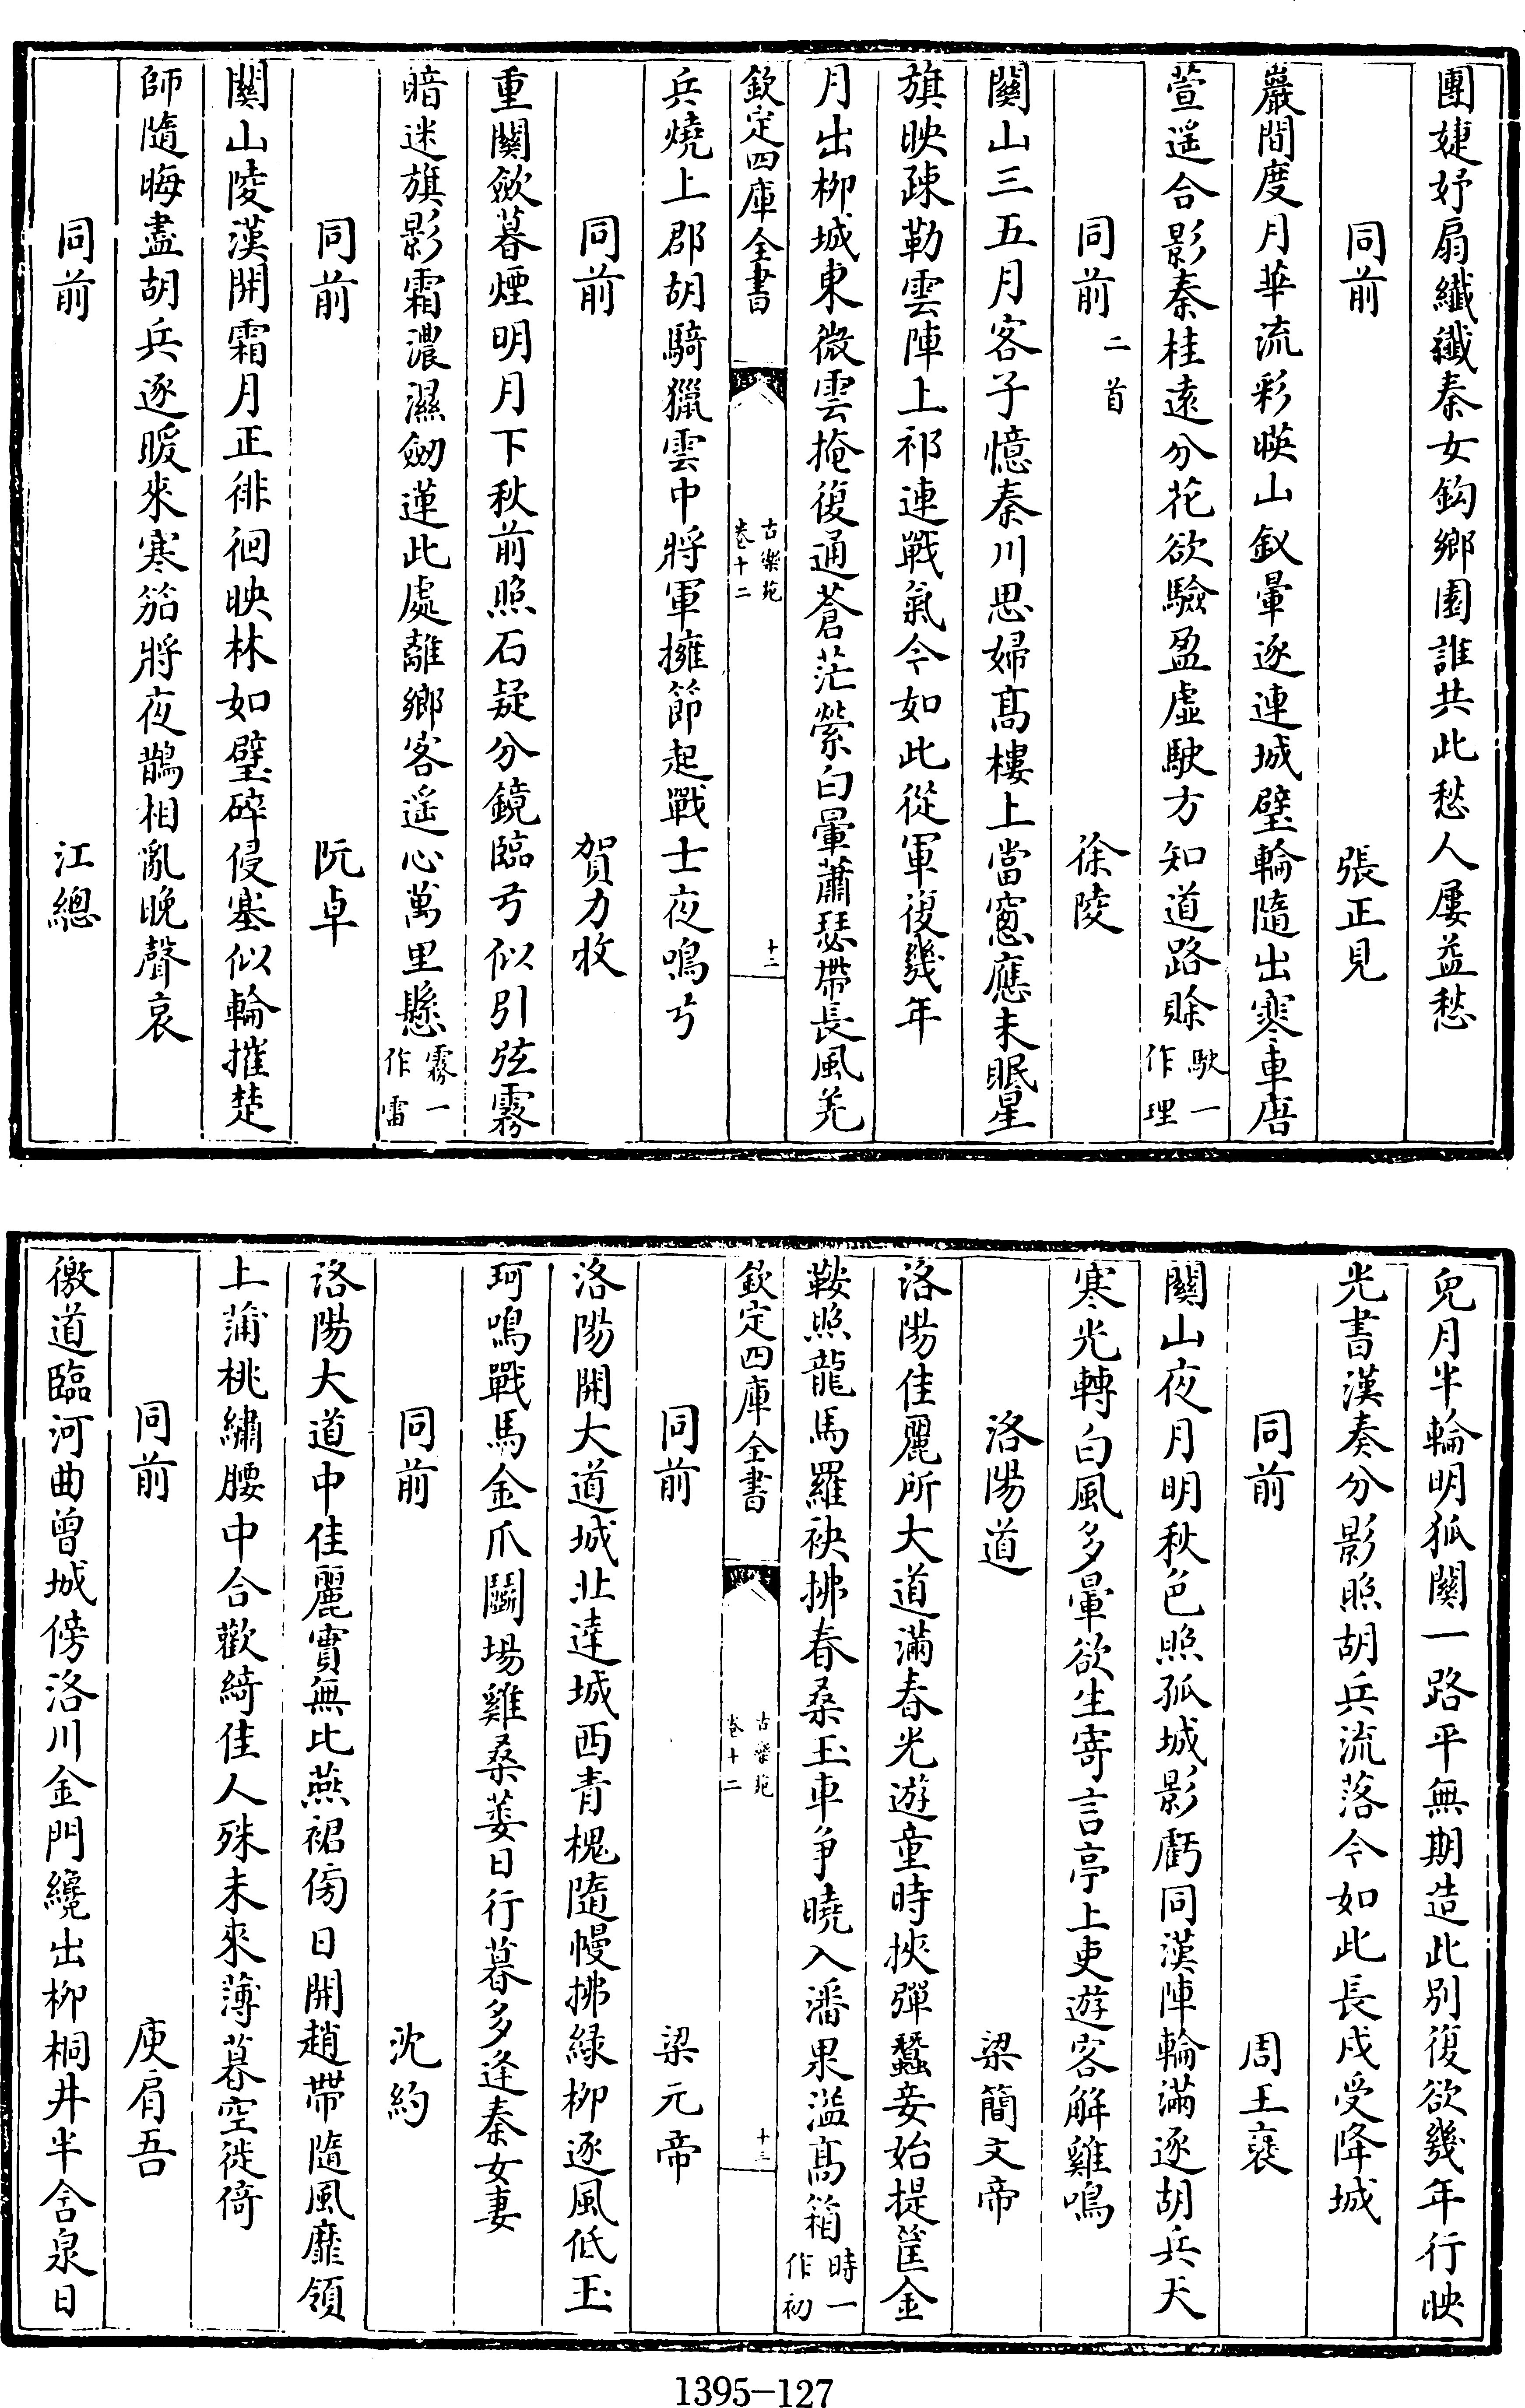 團婕妤扇纖纖秦女鈎鄉園誰共此愁人屢益愁
同前 張正見
巖間度月華流彩暎山釵暈逐連城璧輪隨出寒車唐
蓂遥合影秦桂逺分花欲驗盈虛駛方知道路賖駛一作理
同前二首 徐陵
關山三五月客子憶秦川思婦髙樓上當窻應未眠星
旗映疎勒雲陣上祁連戰氣今如此從軍復幾年
月出柳城東微雲掩復通蒼茫縈白暈蕭瑟帶長風羌
欽定四庫全書 古樂苑卷十二 十二
兵燒上郡胡騎獵雲中將軍擁節起戰士夜鳴弓
同前 賀力牧
重關歛暮煙明月下秋前照石疑分鏡臨弓似引弦霧
暗迷旗影霜濃濕劒蓮此處離鄉客遥心萬里懸霧一作雷
同前 阮卓
關山陵漢開霜月正徘徊映林如璧碎侵塞似輪摧楚
師隨晦盡胡兵逐暖來寒笳將夜鵲相亂晚聲哀
同前 江總
兎月半輪明狐關一路平無期造此别復欲幾年行映
光書漢奏分影照胡兵流落今如此長戍受降城
同前 周王襃
關山夜月明秋色照孤城影虧同漢陣輪滿逐胡兵天
寒光轉白風多暈欲生寄言亭上吏遊客解雞鳴
洛陽道 梁簡文帝
洛陽佳麗所大道滿春光遊童時挾彈蠶妾始提筐金
鞍照龍馬羅袂拂春桑玉車争曉入潘果溢髙箱時一作初
欽定四庫全書 古樂苑卷十二 十三
同前 梁元帝
洛陽開大道城北達城西青槐隨幔拂緑柳逐風低玉
珂鳴戰馬金爪鬬塲雞桑萎日行暮多逢秦女妻
同前 沈約
洛陽大道中佳麗實無比燕裙傍日開趙帶隨風靡領
上蒲桃繡腰中合歡綺佳人殊未來薄暮空徙倚
同前 庾肩吾
徼道臨河曲曾城傍洛川金門纔出柳桐井半含泉日
1395-127